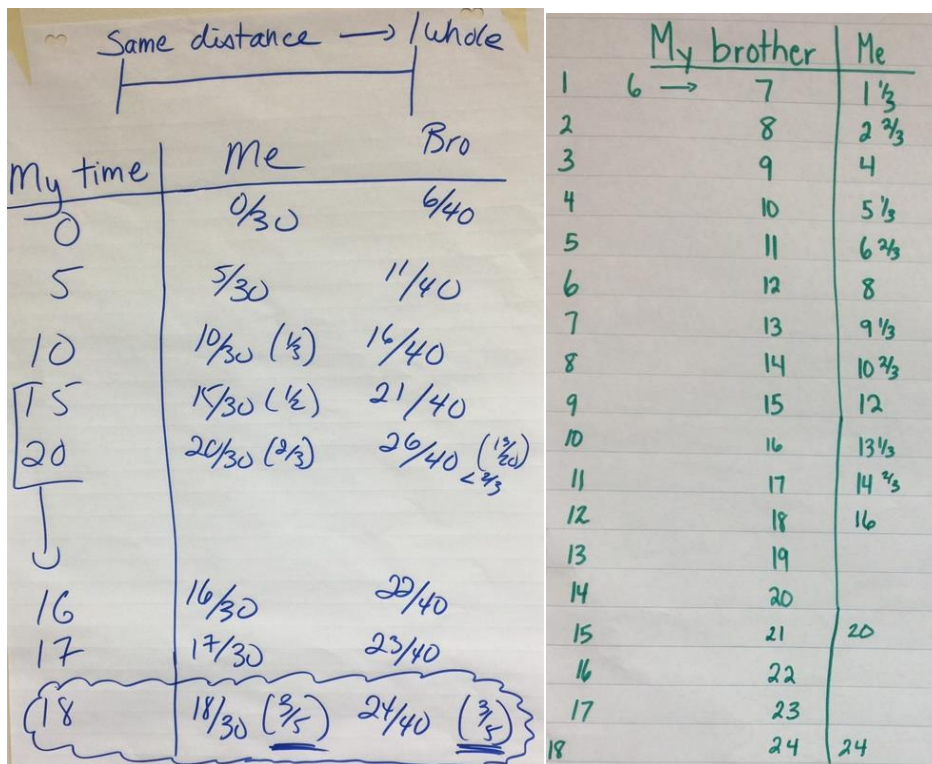 Same distance → 1 whole
My time Me Bro
0 0/30 6/40
5 5/30 11/40
10 10/30 (1/3) 16/40
15 15/30 (1/2) 21/40
20 20/30 (2/3) 26/40 (13/20)
< 2/3
16 16/30 22/40
17 17/30 23/40
18 18/30 (3/5) 24/40 (3/5)
My brother Me
1 6 → 7 1 1/3
2 8 2 2/3
3 9 4
4 10 5 1/3
5 11 6 2/3
6 12 8
7 13 9 1/3
8 14 10 2/3
9 15 12
10 16 13 1/3
11 17 14 2/3
12 18 16
13 19
14 20
15 21 20
16 22
17 23
18 24 24